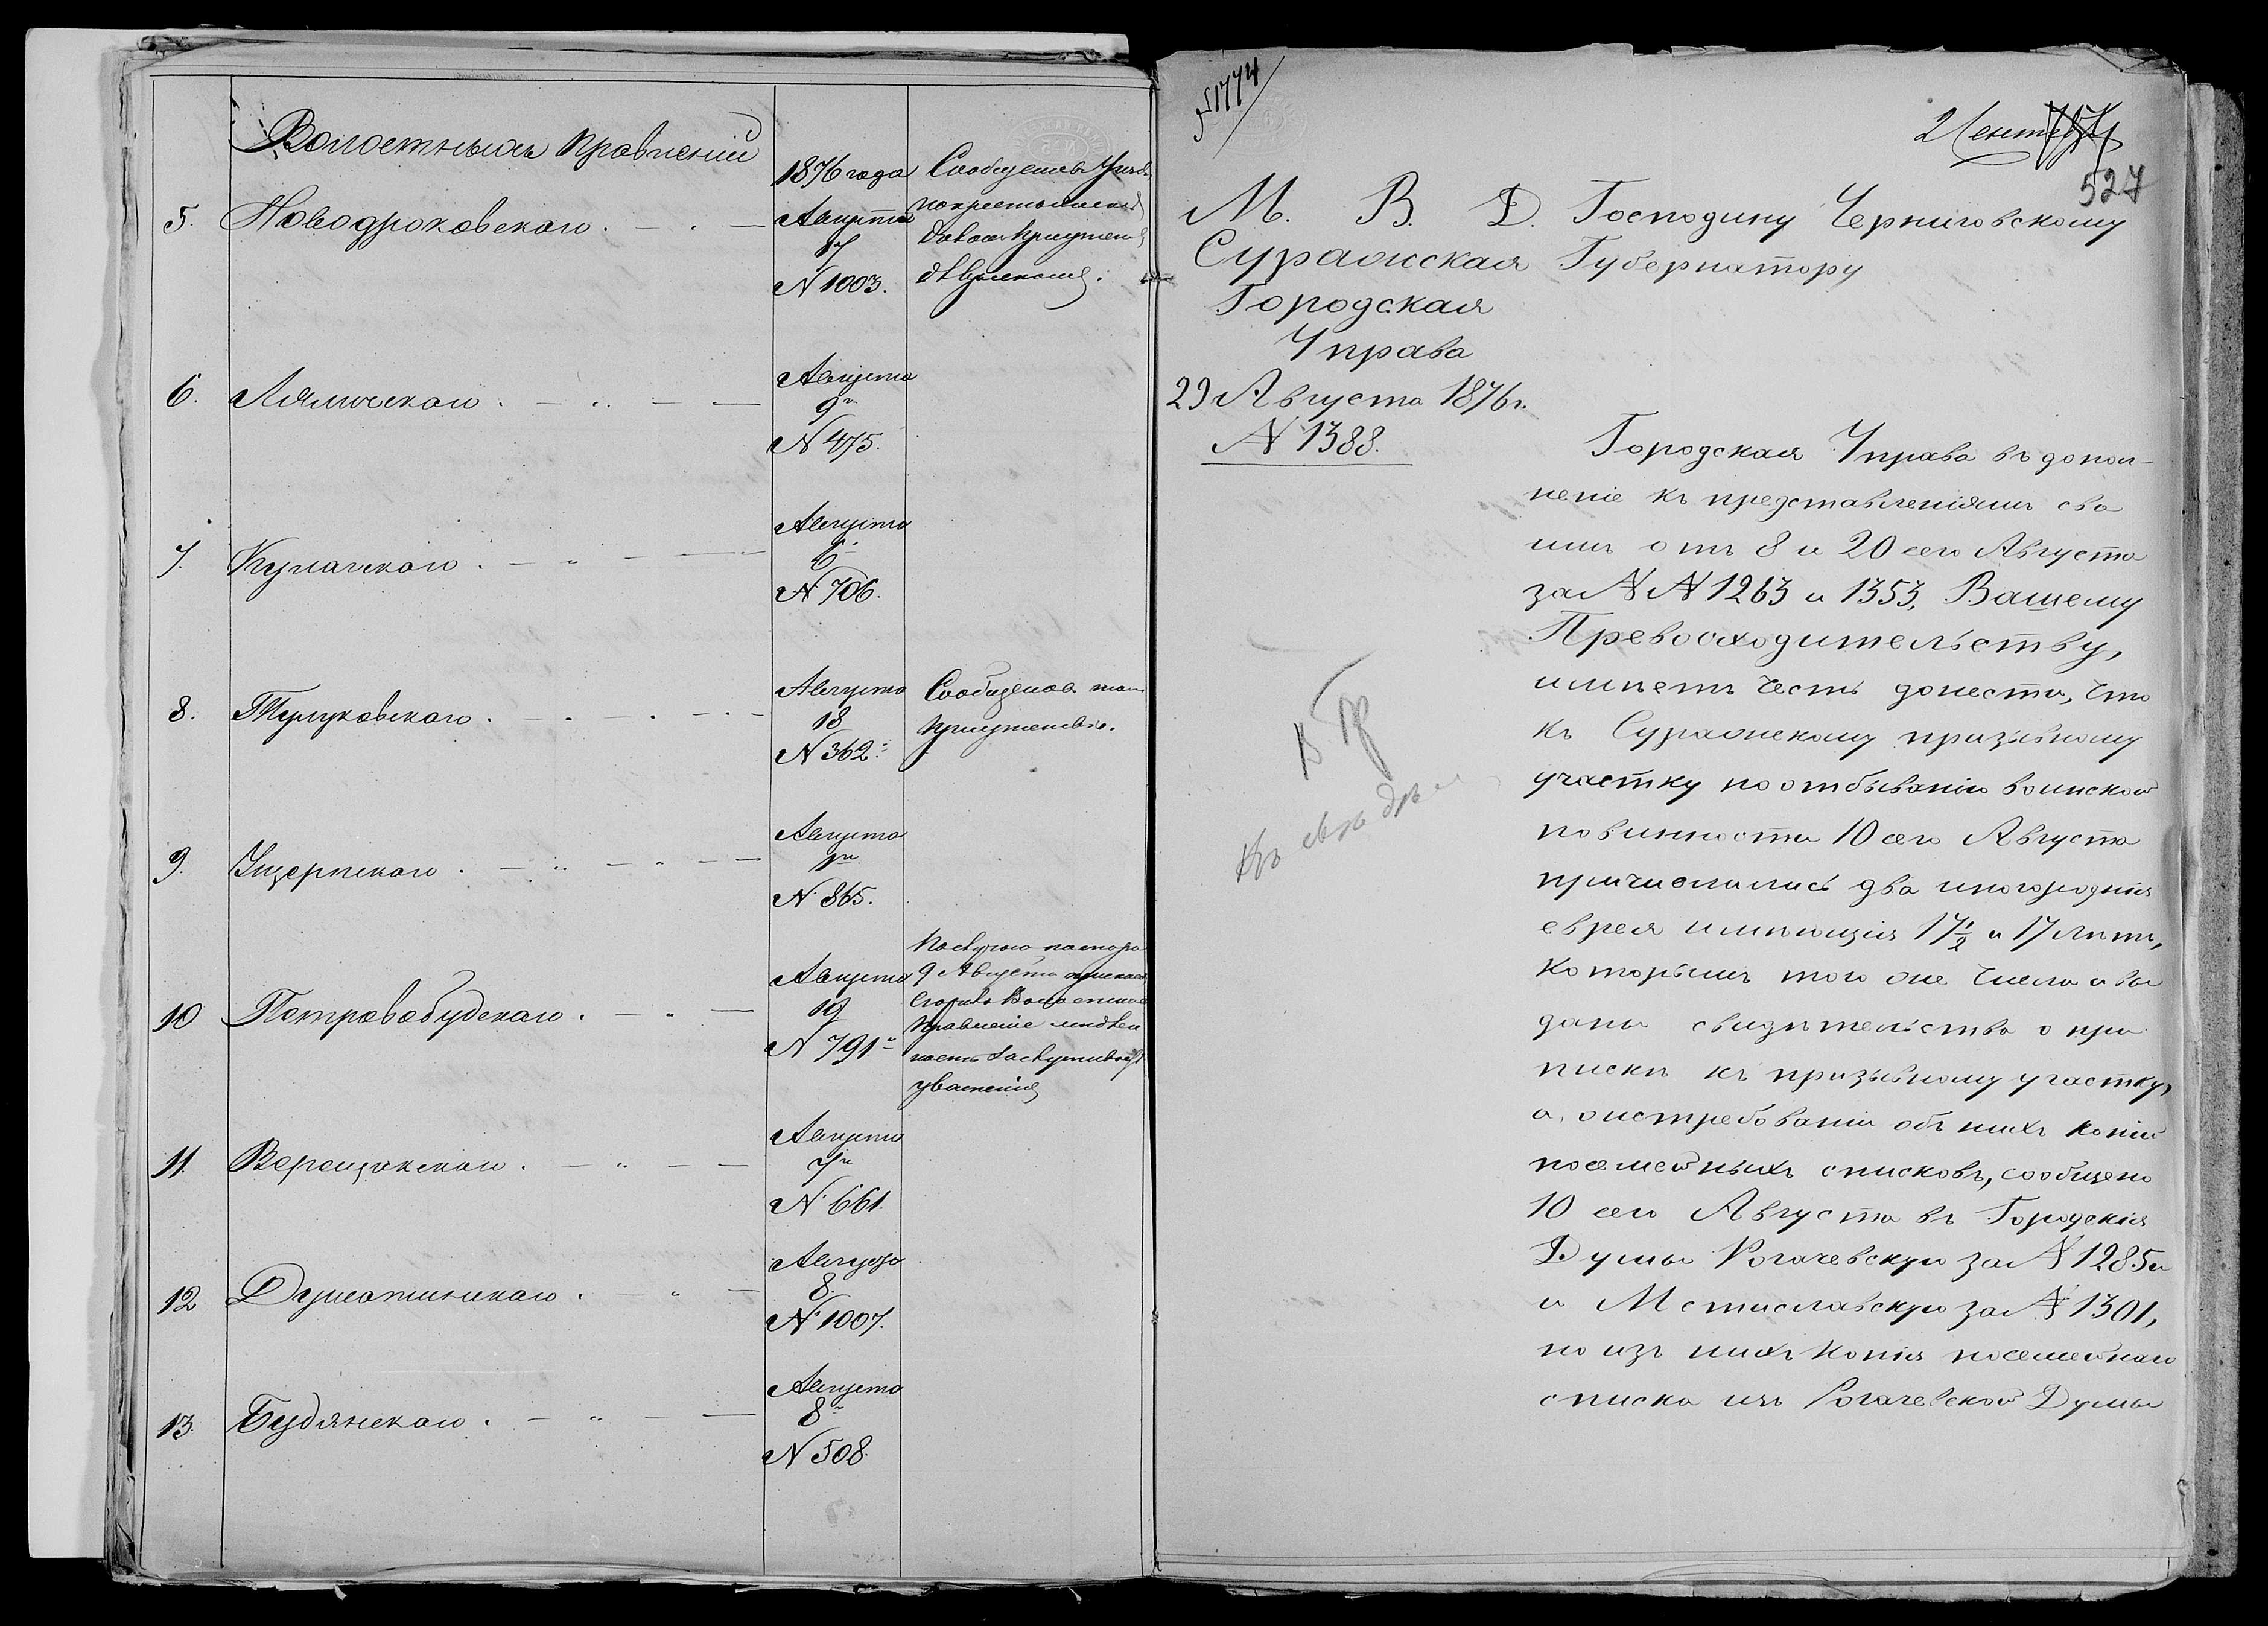 Волостныхъ Правленій
1876 года
5. Новодроковскаго
Августа
17
N 1003.
Сообщено Уѣзд.
6. Лялическаго
Августа
9го
N 475.
7. Кулагскаго
Августа
6
N 706.
8. Душковскаго
Августа
18
N 362.
Сообщено
присутствію.
9. Ущерпскаго
Августа
N 865.
10 Петровобудскаго
Августа
19
N 791
9 Августа
Правленіе
уваженія
11. Верещакскаго
Августа
7го
N 661.
12 Душатинскаго
Августа
8.
N 1007.
13. Будянскаго
Августа
8
N 508.
1774
2 Сентяб
527
М. В. Д.
Суражская
Городская
Управа
29 Августа 1876 г.
N 1388.
Господину Черниговскому
Губернатору
Городская Управа въ допол-
неніе къ представленіямъ сво
имъ отъ 8 и 20 сего Августа
за N N 1263 и 1353, Вашему
Превосходительству,
имѣетъ честь донести, что
къ Суражскому призывному
участку по отбыванію воинской
повинности 10 сего Августа
причислились два иногородніе
еврея имѣющія 17 1/2 и 17 лѣтъ,
которымъ того же числа и вы
даны свидѣтельства о при
пискѣ къ призывному участку,
а, о истребованіи объ нихъ копій
посемейныхъ списковъ, сообщено
10 сего Августа въ Городскія
Думы Рогачевскую за N 1285
и Мстиславскую за N 1301,
но изъ нихъ копія посемейнаго
списка изъ Рогачевской Думы